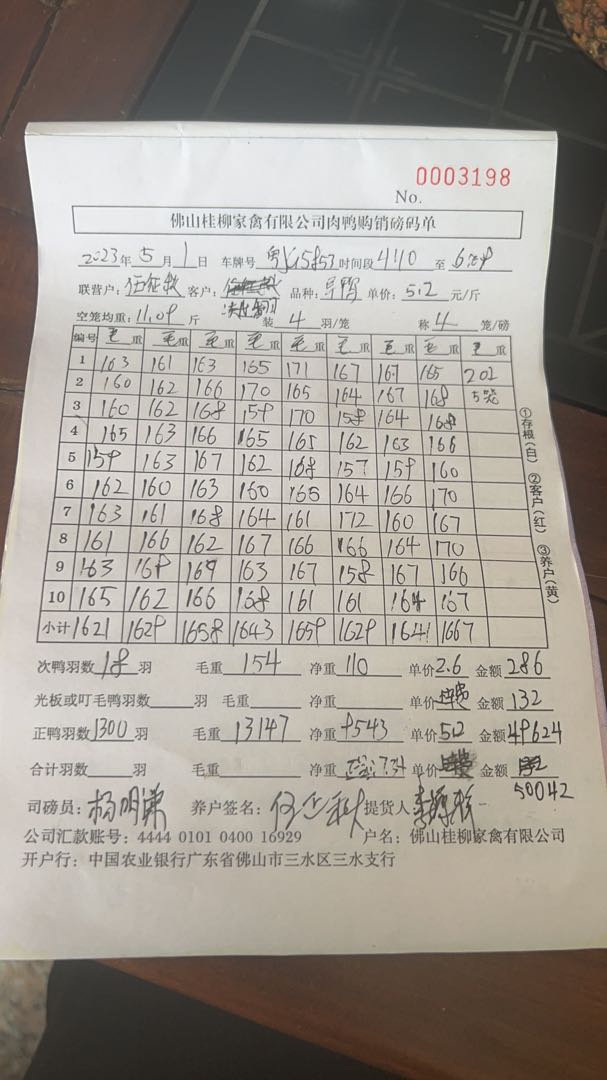 0003198
No.
佛山桂柳家禽有限公司肉鸭购销磅码单
2023年5月1日 车牌号 时间段 4:10 至
联营户: 客户: 品种: 单价: 5.2 元/斤
空笼均重: 11.09 斤 装 4 羽/笼 称 4 笼/磅
编号 毛重 毛重 毛重 毛重 毛重 毛重 毛重 毛重 毛重
1 163 161 163 165 171 167 167 165 202
2 160 162 166 170 165 164 167 168 5笼
3 160 162 168 159 170 158 164 168
4 165 163 166 165 165 162 163 166
5 159 163 167 162 168 157 159 160
6 162 160 163 160 165 164 166 170
7 163 161 168 164 161 172 160 167
8 161 166 162 167 166 166 164 170
9 163 169 169 163 167 158 167 166
10 165 162 166 168 161 161 164 167
小计 1621 1629 1658 1643 1659 1629 1641 1667
①存根(白) ②客户(红) ③养户(黄)
次鸭羽数 18 羽 毛重 154 净重 110 单价 2.6 金额 286
光板或叮毛鸭羽数 羽 毛重 净重 单价 金额 132
正鸭羽数 1300 羽 毛重 13147 净重 9543 单价 5.2 金额 49624
合计羽数 羽 毛重 净重 7.34 单价 金额
50042
司磅员: 杨明 养户签名: 提货人
公司汇款账号: 4444 0101 0400 16929 户名: 佛山桂柳家禽有限公司
开户行: 中国农业银行广东省佛山市三水区三水支行